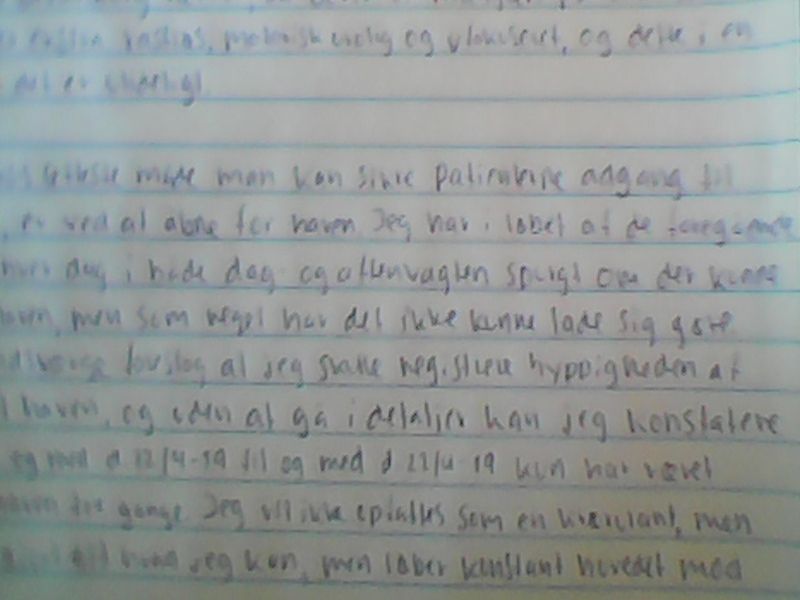 rastløs, motorisk urolig og ukoncentreret, og dette i en
det er ulideligt
letteste måde man kan sikre patienterne adgang til
er ved at åbne for haven. Jeg har i løbet af de foregående
hver dag i både dag- og aftenvagten spurgt om der kunne
haven, men som regel har det ikke kunne lade sig gøre.
foreslog at jeg skulle registrere hyppigheden af
haven, og uden at gå i detaljer kan jeg konstatere
og med d 12/4-19 til og med d 22/4-19 kun har været
haven tre gange. Jeg vil ikke opfattes som en kværulant, men
alt hvad jeg kan, men løber konstant hovedet mod